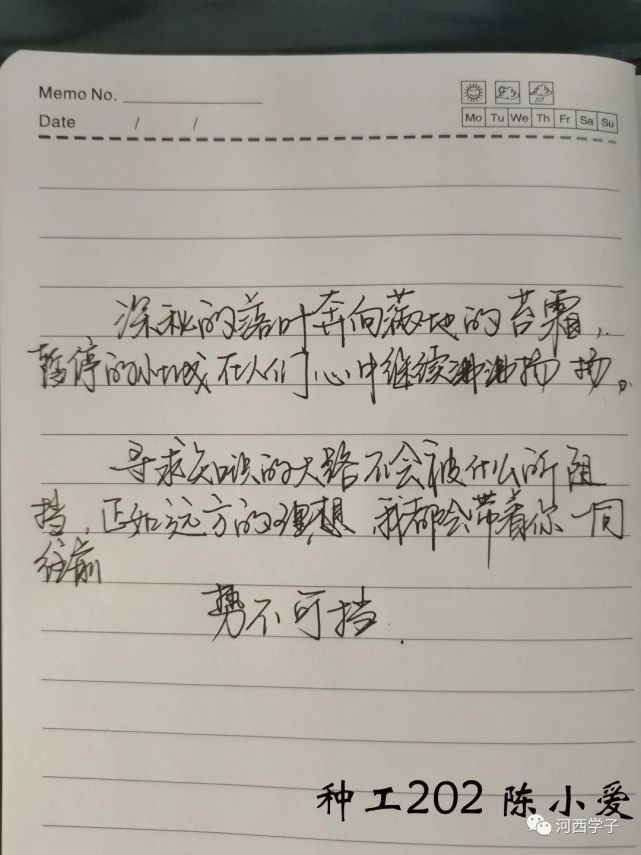 Memo No.
Date / /
Mo Tu We Th Fr Sa Su
深秋的落叶奔向满地的苔霜,
暂停的小城在人们心中继续沸沸扬扬。
寻求知识的大路不会被什么所阻
挡,正如远方的理想 我都会带着你一同
往前
势不可挡.
种工202 陈小爱
河西学子